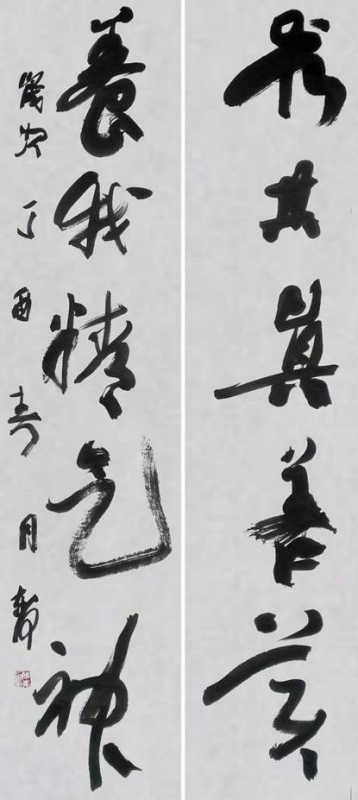 其真善美
养我精气神
歲次丁酉春月